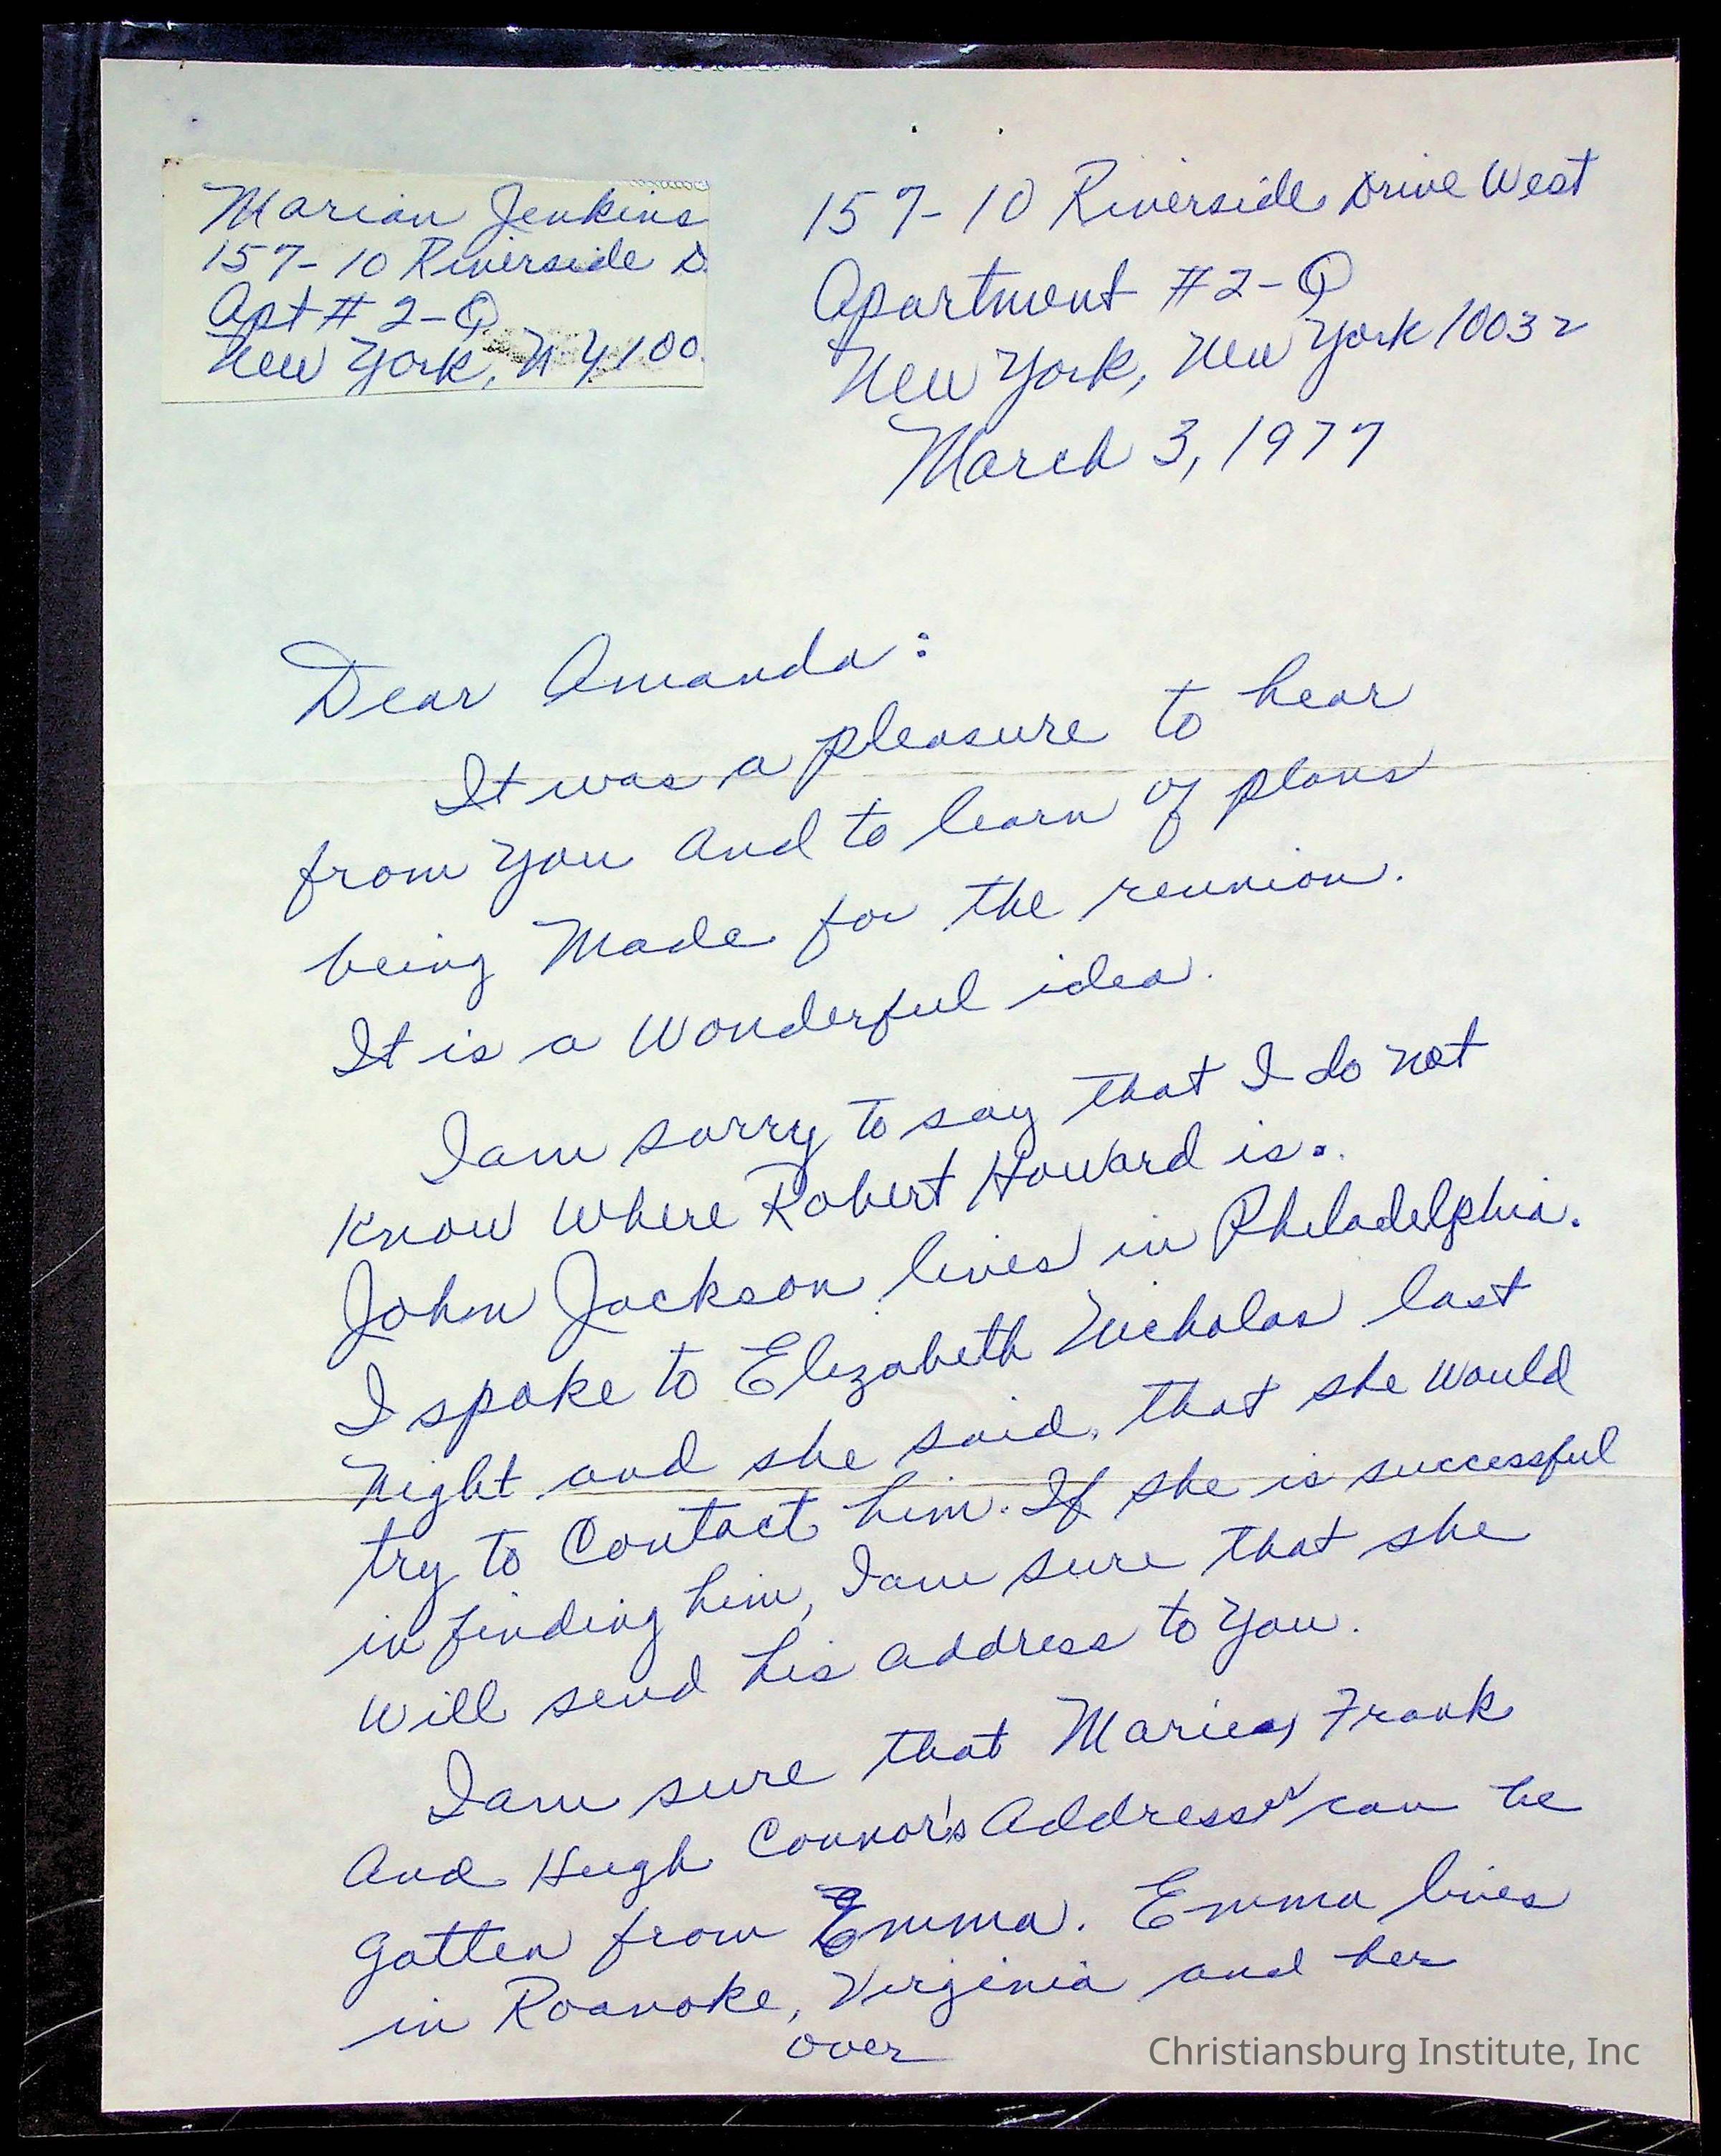 Marian Jenkins
157-10 Riverside D.
Apt # 2-Q
New York, N Y 100
157-10 Riverside Drive West
Apartment #2-Q
New York, New York 10032
March 3, 1977
Dear Amanda:
It was a pleasure to hear
from you and to learn of plans
being Made for the reunion.
It is a Wonderful idea.
I am sorry to say that I do not
Know Where Robert Howard is.
John Jackson lives in Philadelphia.
I spoke to Elizabeth Nicholas last
Night and she said, that she Would
try to Contact him. If she is successful
in finding him, I am sure that she
Will send his address to you.
I am sure that Maries, Frank
And Hugh Connor's Address can be
gotten from Emma. Emma lives
in Roanoke, Virginia and her
over
Christiansburg Institute, Inc